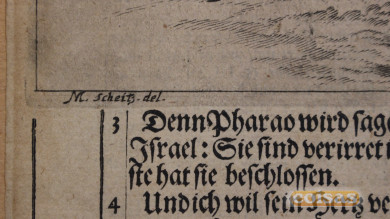 M. Scheitz. del.
3 Denn Pharao wird sage
Israel: Sie sind verirret
ste hat sie beschlossen.
4 Und ich wil sein Hertz